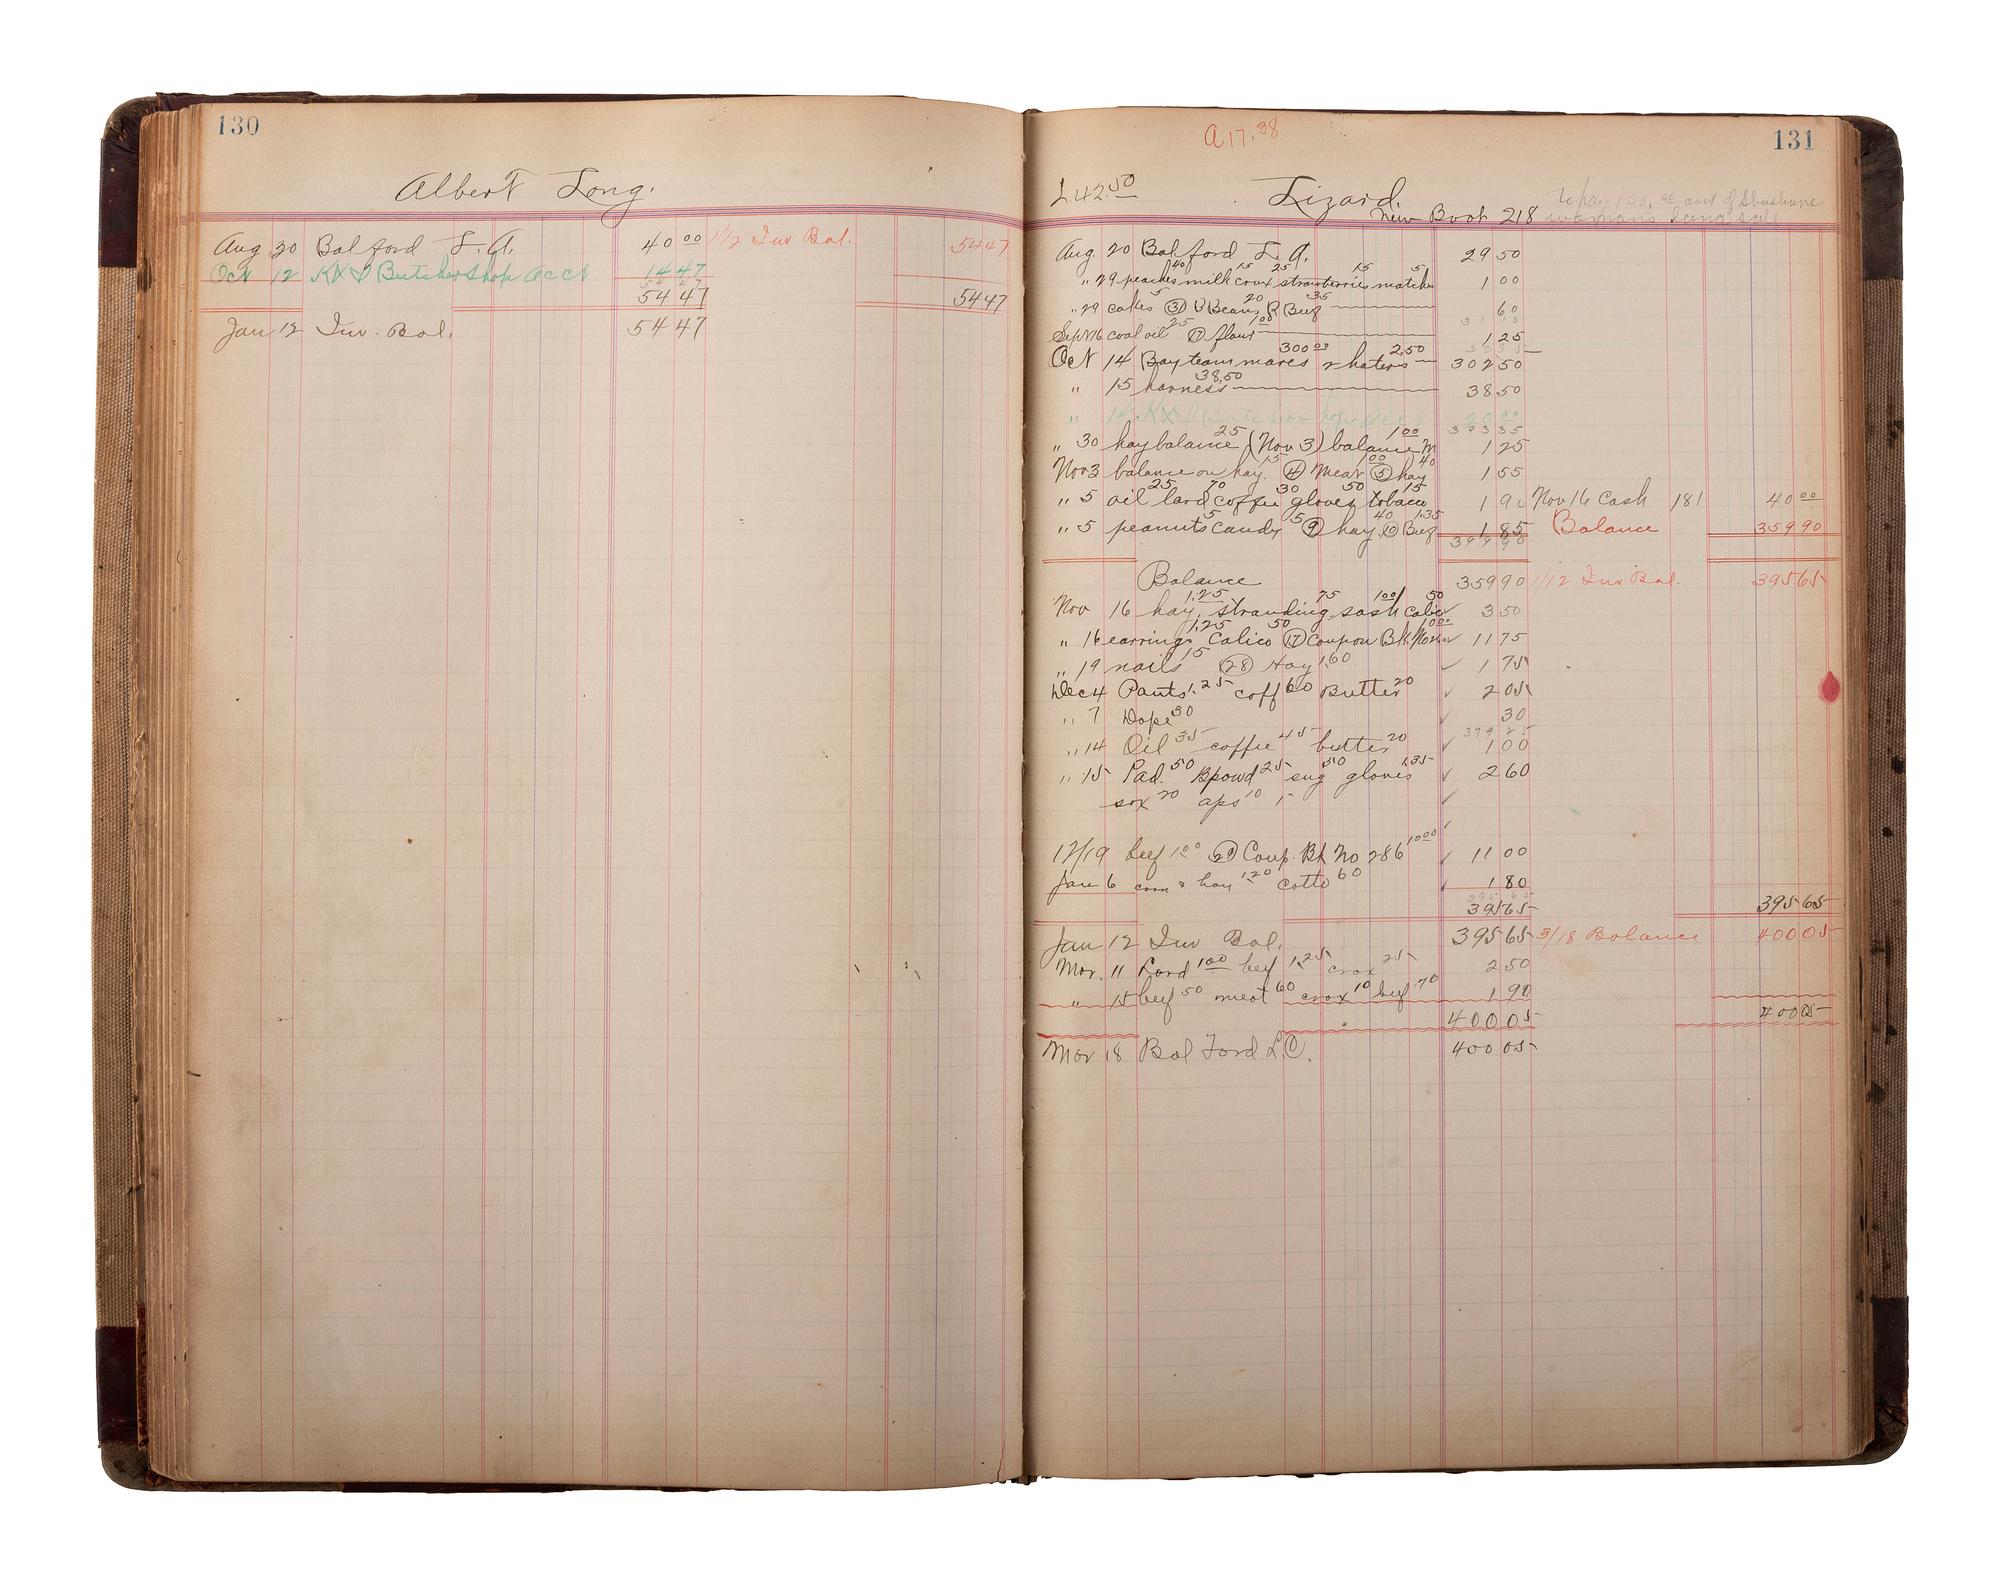 130
Albert Long.
Aug 20 Bal ford L. A. 40 00 1/12 Inv Bal. 54 47
Oct 12 KX & Butchershop acct 14 47
54 47
54 47 54 47
Jan 12 Inv. Bal. 54 47
A 17.38
131
L.42.50 Lizard.
New Book 218
to pay out of
womans
Aug. 20 Bal ford L. A. 29 50
" 29 peaches 40 milk 15 crax 25 strawberries 15 matches 5 1 00
" 29 cakes 5 (31) B Beans 20 R Beef 35 60
Sept 16 coal oil 25 (17) flour 1 00 1 25
Oct 14 Bay team mares 300 00 2.50 302 50
" 15 harness 38.50 38 50
" 14 KX & Butchershop acct 20 00
393 35
" 30 hay balance 25 (Nov 3) balance M 1 00 1 25
Nov 3 balance on hay 15 (4) meat 1 00 (5) hay 40 1 55
" 5 oil 25 lard 70 coffee 30 gloves 50 tobacco 15 1 90 Nov 16 Cash 181 40 00
" 5 peanuts 5 candy 5 (9) hay 40 (10) Beef 1.35 1 85 Balance 359 90
399 90
Balance 359 90 1/12 Inv Bal. 395 65
Nov 16 hay 1.25 75 sash 1 00 calico 50 3 50
" 16 earrings 1.25 Calico 50 (17) Coupon Bk No 10 00 11 75
" 19 nails 15 (28) Hay 1.60 1 75
Dec 4 Pants 1.25 coff 60 Butter 20 2 05
" 7 Dope 30 30
379 25
" 14 Oil 35 coffee 45 butter 20 1 00
" 15 Pad. 50 Bpowd 25 sug 50 gloves 1.35 2 60
sox 20 aps 10
12/19 beef 1 00 (21) Coup. Bk No 286 10 00 11 00
Jan 6 corn & hay 1.20 cotto 60 1 80
395 65
395 65 395 65
Jan 12 Inv Bal. 395 65 3/18 Balance 400 05
Mar. 11 Lard 1 00 beef 1.25 crax 25 2 50
" 15 beef 50 meat 60 crax 10 beef 70 1 90
400 05 400 05
Mar 18 Bal Ford L.C. 400 05